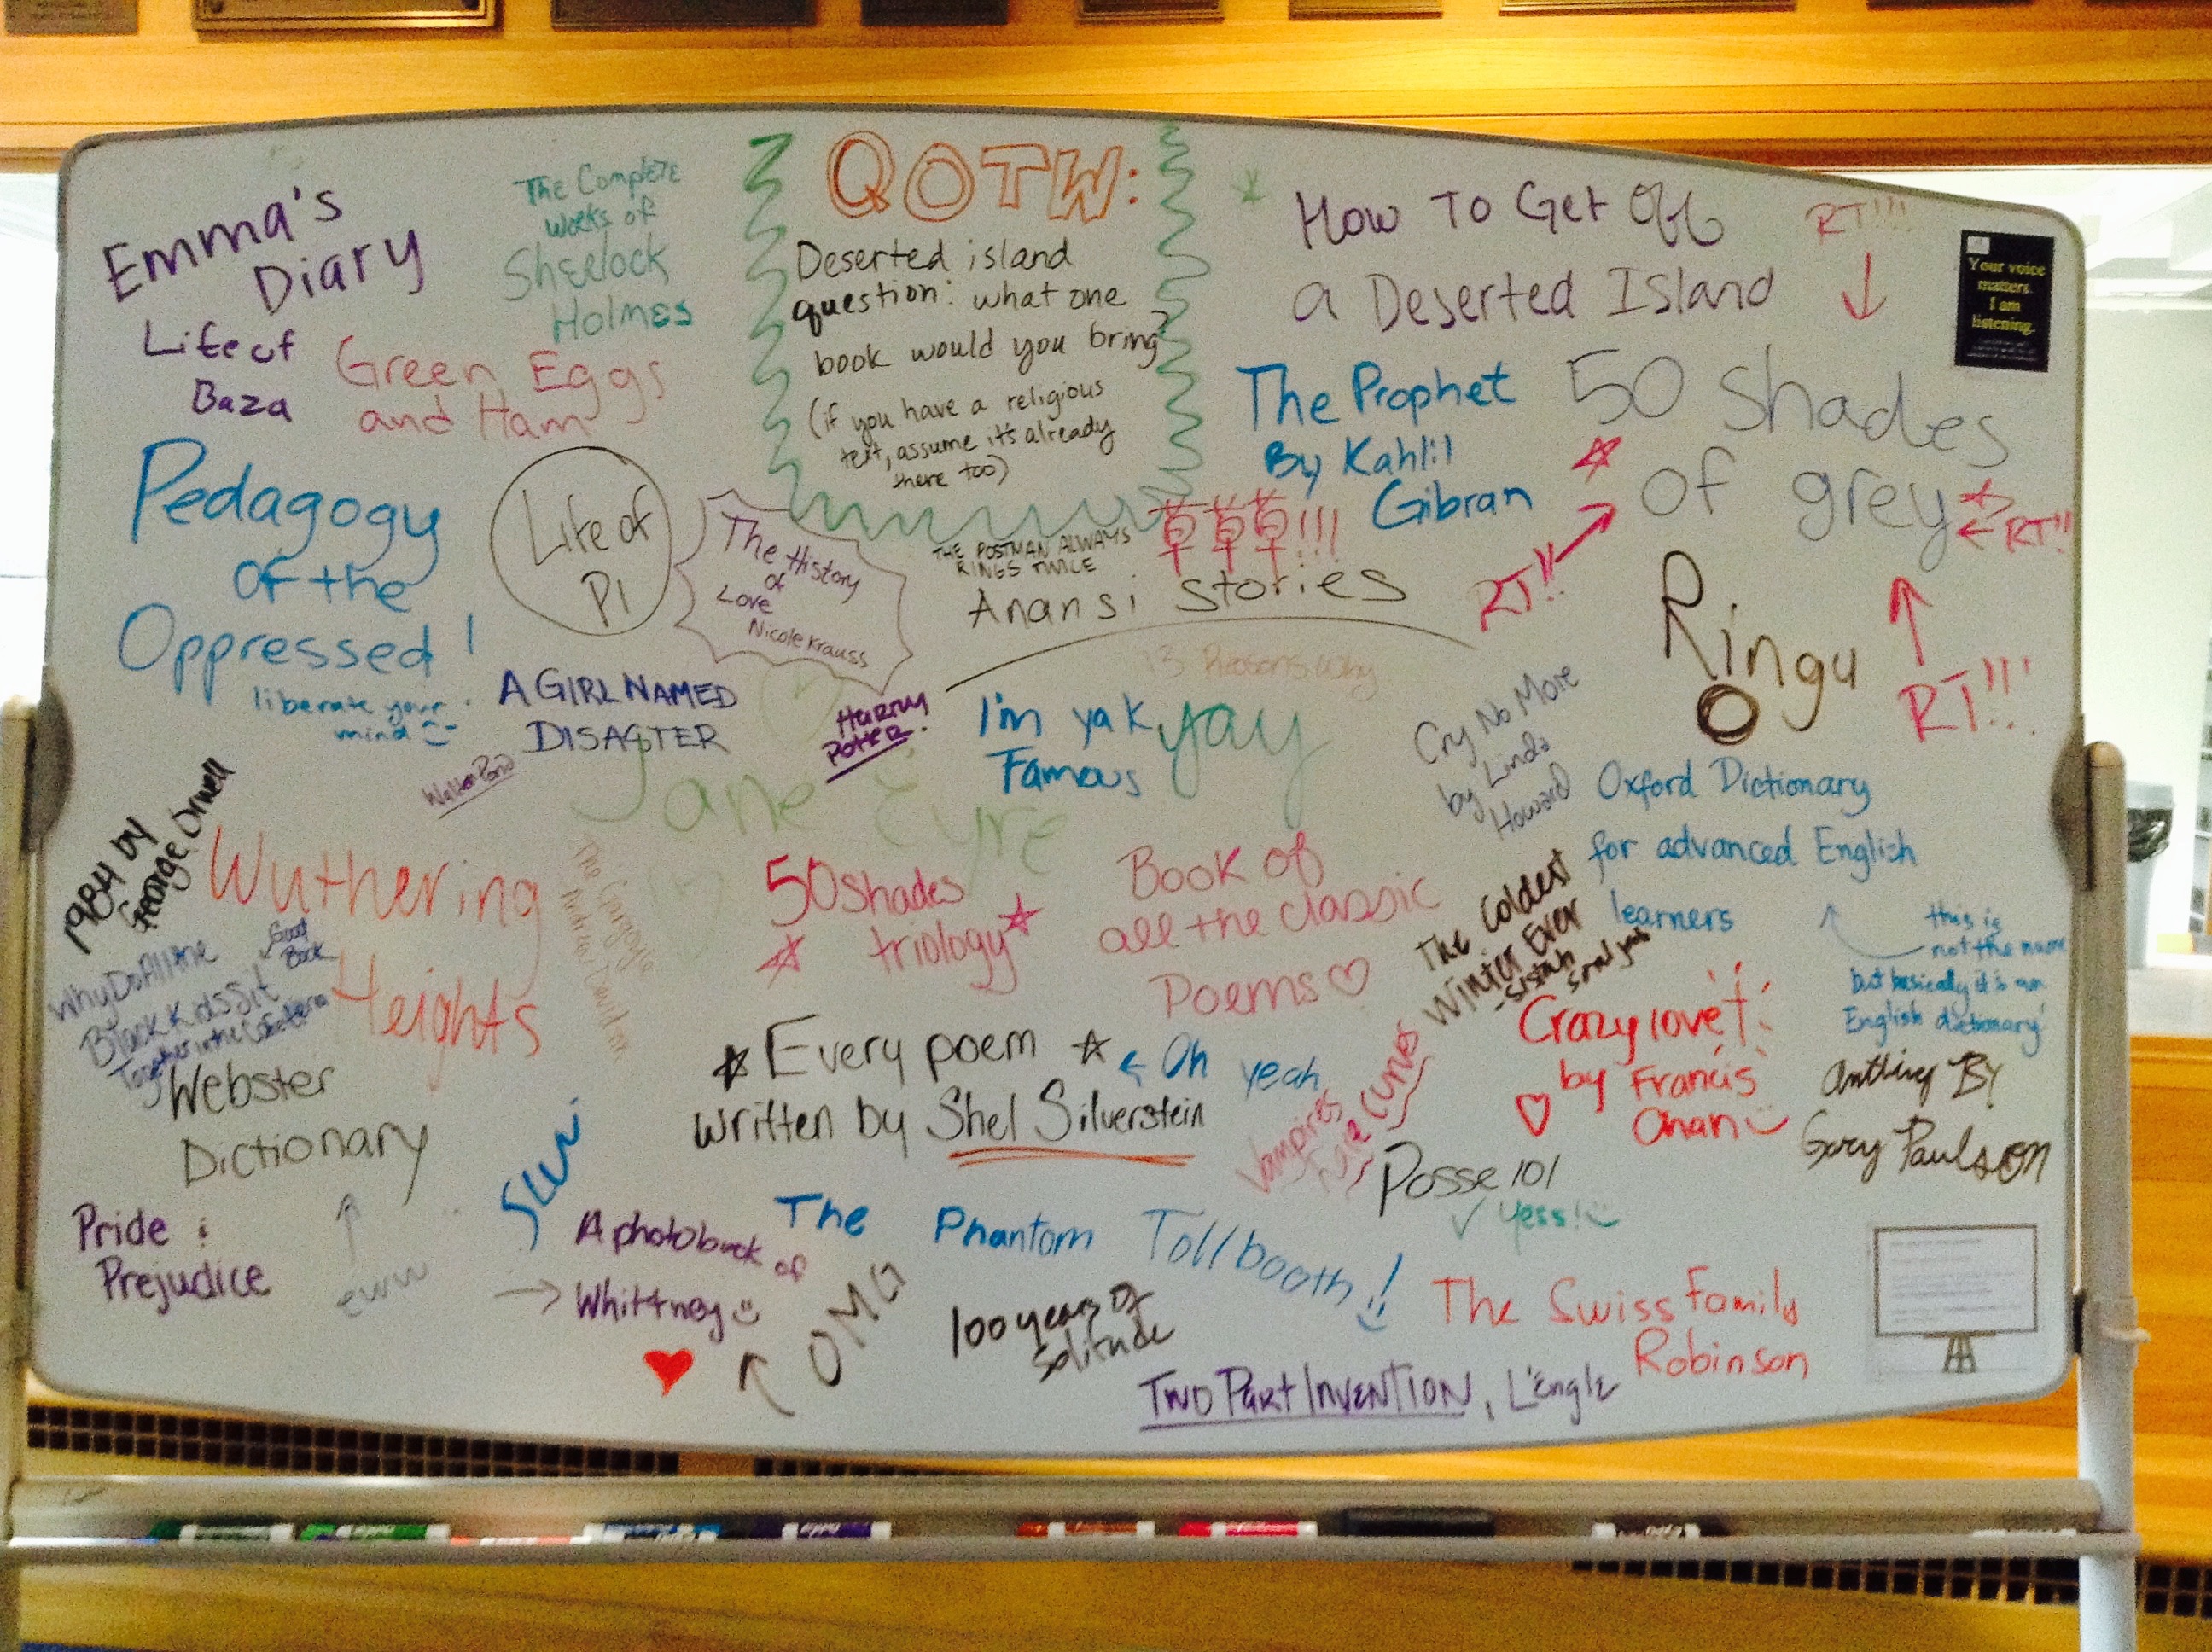 QOTW:
Deserted island
question: what one
book would you bring?
(if you have a religious
text, assume it's already
there too)
Emma's
Diary
The Complete
Works of
Sherlock
Holmes
Life of
Baza
Green Eggs
and Ham
Pedagogy
of the
Oppressed!
liberate your
mind
Life of
Pi
The History
of
Love
Nicole Krauss
THE POSTMAN ALWAYS
RINGS TWICE
草草草!!!
Anansi stories
How To Get Off
a Deserted Island
RT!!!
Your voice
matters.
I am
listening.
The Prophet
By Kahlil
Gibran
50 Shades
of grey
RT!!
RT!!
RT!!!
Ringu
A GIRL NAMED
DISASTER
HARRY
POTTER.
13 Reasons Why
I'm yak
Famous
yay
Jane Eyre
Cry No More
by Linda
Howard
Oxford Dictionary
for advanced English
learners
this is
not the name
but basically it is an
English dictionary
1984 by
George Orwell
Wuthering
Heights
The Gargoyle
Why Do All the
Black Kids Sit
Together in the Cafeteria
Good
Book
50 shades
triology
Book of
all the classic
Poems
The Coldest
Winter Ever
-Sistah
Crazy love
by Francis
Chan
Webster
Dictionary
eww
Every poem
written by Shel Silverstein
Oh yeah
Vampires
Posse 101
Yess!
Anthing By
Gary Paulson
Pride &
Prejudice
A photobook of
Whittney
OMG
The Phantom Tollbooth!
100 years of
Solitude
The Swiss Family
Robinson
TWO PART INVENTION, L'Engle